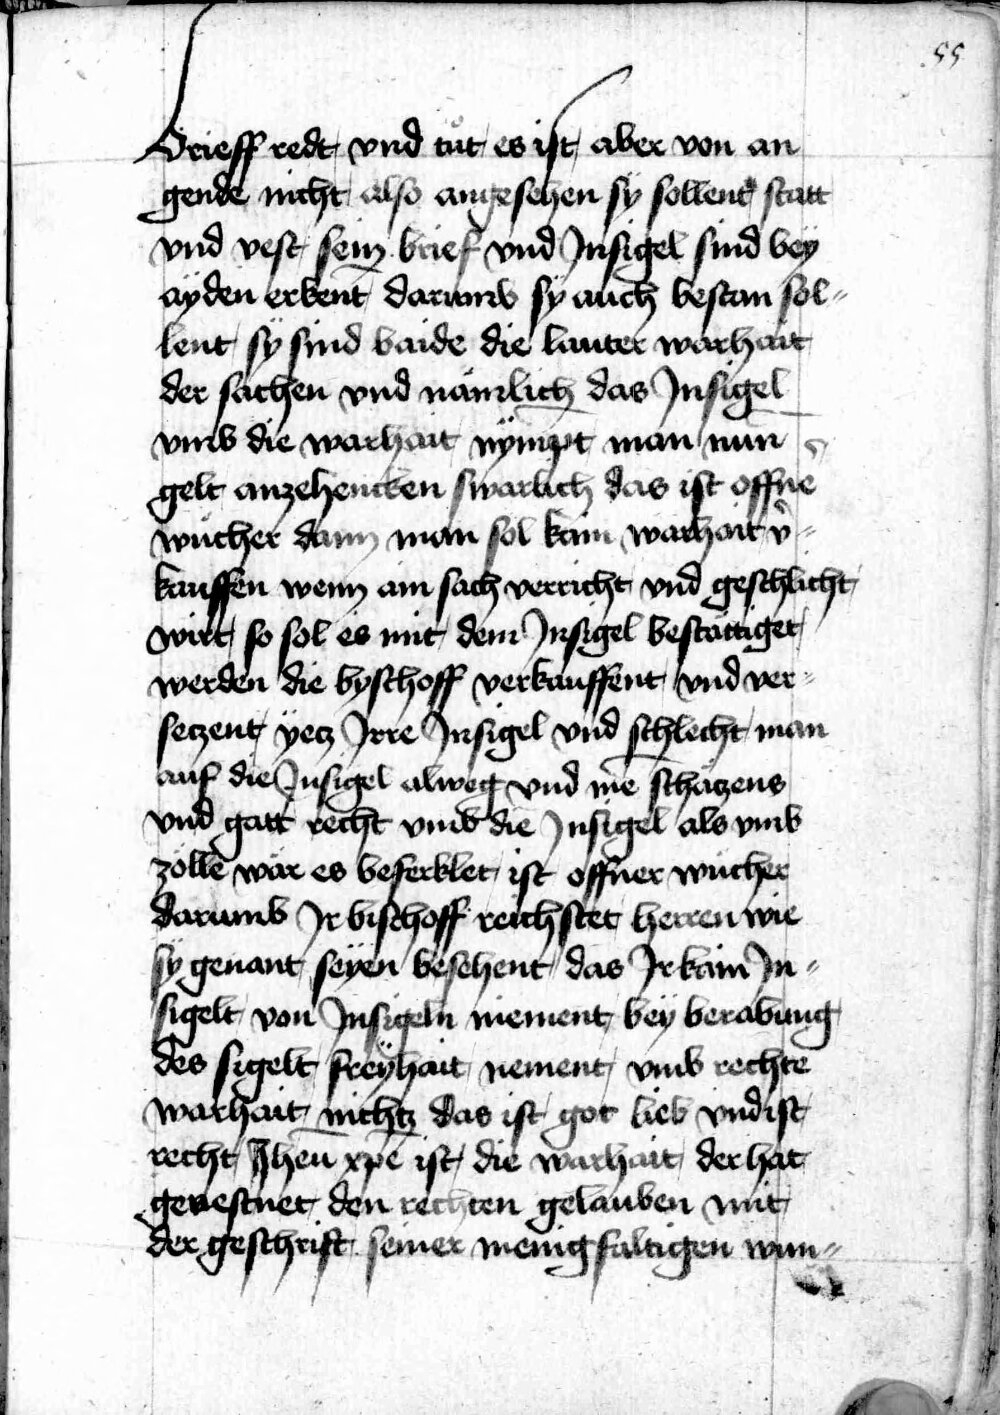 55
Brieff redt vnd tůt es ist aber von an
gende nicht also angesehen sy sollent statt
vnd vest sein brief vnd Jnsigel sind bey
ayden erkent darumb sy auch bestan sol=
lent sÿ sind baide die lauter warhait
der sachen vnd nämlich das Jnsigel
vmb die warhait nÿmpt man nun
gelt anzehencken swarlich das ist offne
wůcher dann man sol kain warhait v̉=
kauffen wenn ain sach verricht vnd geschlicht
wirt so sol es mit dem Jnsigel bestättiget
werden die byschoff verkauffent vnd ver=
setzent yetz Jrre Jnsigel vnd schlecht man
auf die Jnsigel alweg vnd me schätzens
vnd gatt recht vmb die Jnsigel als vmb
zölle wär es beferklet ist offner wůcher
darumb Jr bischoff reichstet herren wie
sy genant seyen besehent das Jr kain Jn=
sigelt von Jnsigeln niement bey berabung
des sigelt freÿhait nement vmb rechte
warhait nichtz das ist got lieb vnd ist
recht Jheu xpe ist die warhait der hat
geuestnet den rechten gelauben mit
der geschrift seiner menigfaltigen wun=